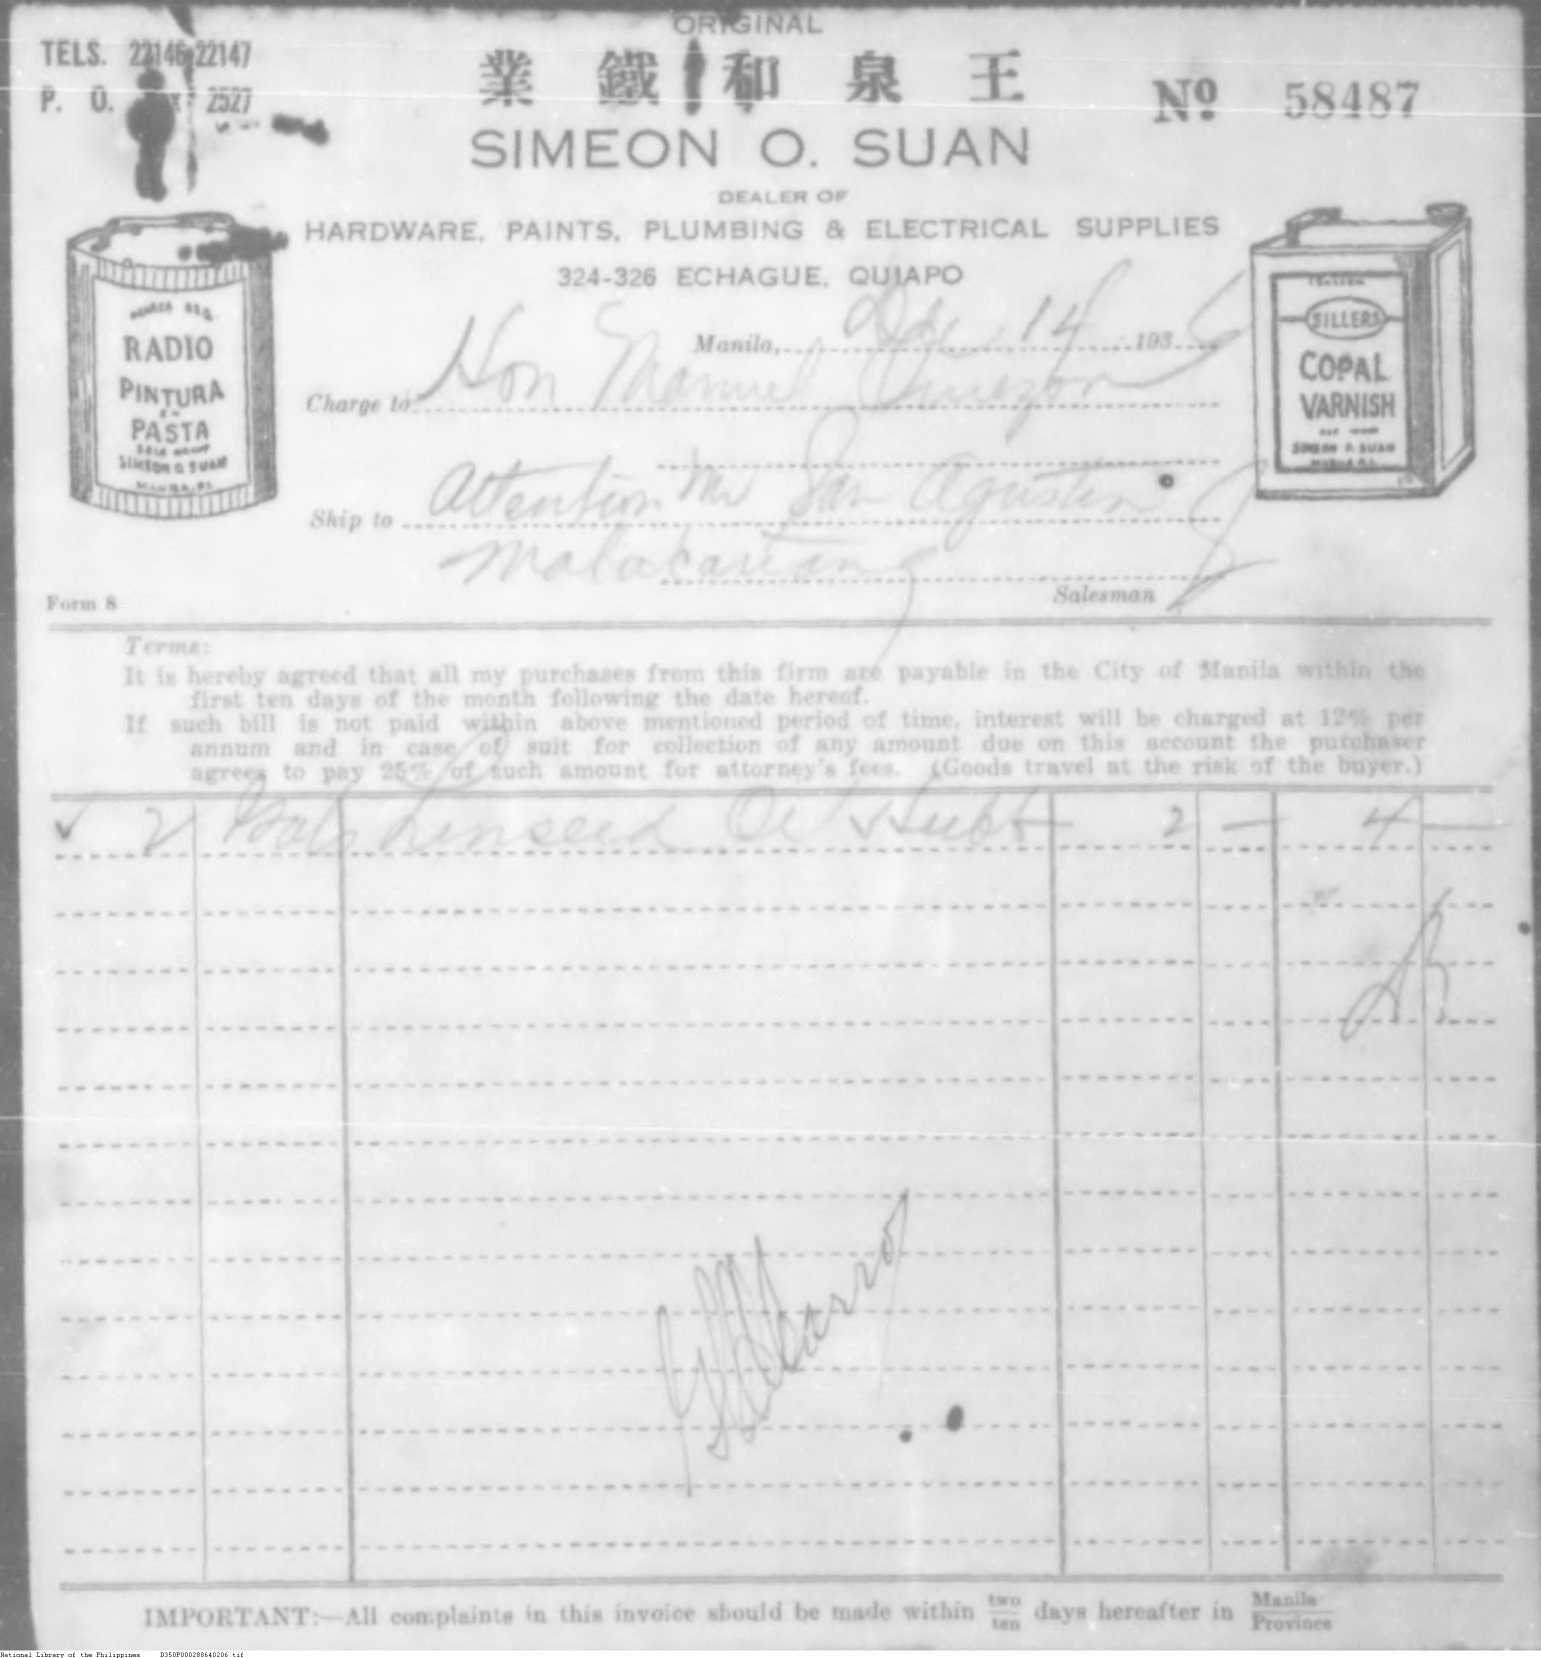 ORIGINAL
TELS. 22146-22147
P. O. 2527
業 鐵 和 泉 王
Nº 58487
SIMEON O. SUAN
DEALER OF
HARDWARE, PAINTS, PLUMBING & ELECTRICAL SUPPLIES
324-326 ECHAGUE, QUIAPO
RADIO
PINTURA
EN
PASTA
SIMEON O SUAN
MANILA, P.I.
SILLERS
COPAL
VARNISH
SIMEON O. SUAN
MANILA P.I.
Manila, Dec 14 193 6
Charge to Hon Manuel Quezon
Ship to Attention Mr San Agustin
Malakanang
Salesman
Form 8
Terms:
It is hereby agreed that all my purchases from this firm are payable in the City of Manila within the
first ten days of the month following the date hereof.
If such bill is not paid within above mentioned period of time, interest will be charged at 12% per
annum and in case of suit for collection of any amount due on this account the purchaser
agrees to pay 25% of such amount for attorney's fees. (Goods travel at the risk of the buyer.)
✓ 2 Gals Linseed Oil 2 — 4 —
IMPORTANT:—All complaints in this invoice should be made within two/ten days hereafter in Manila/Province
National Library of the Philippines D350P000288640206.tif